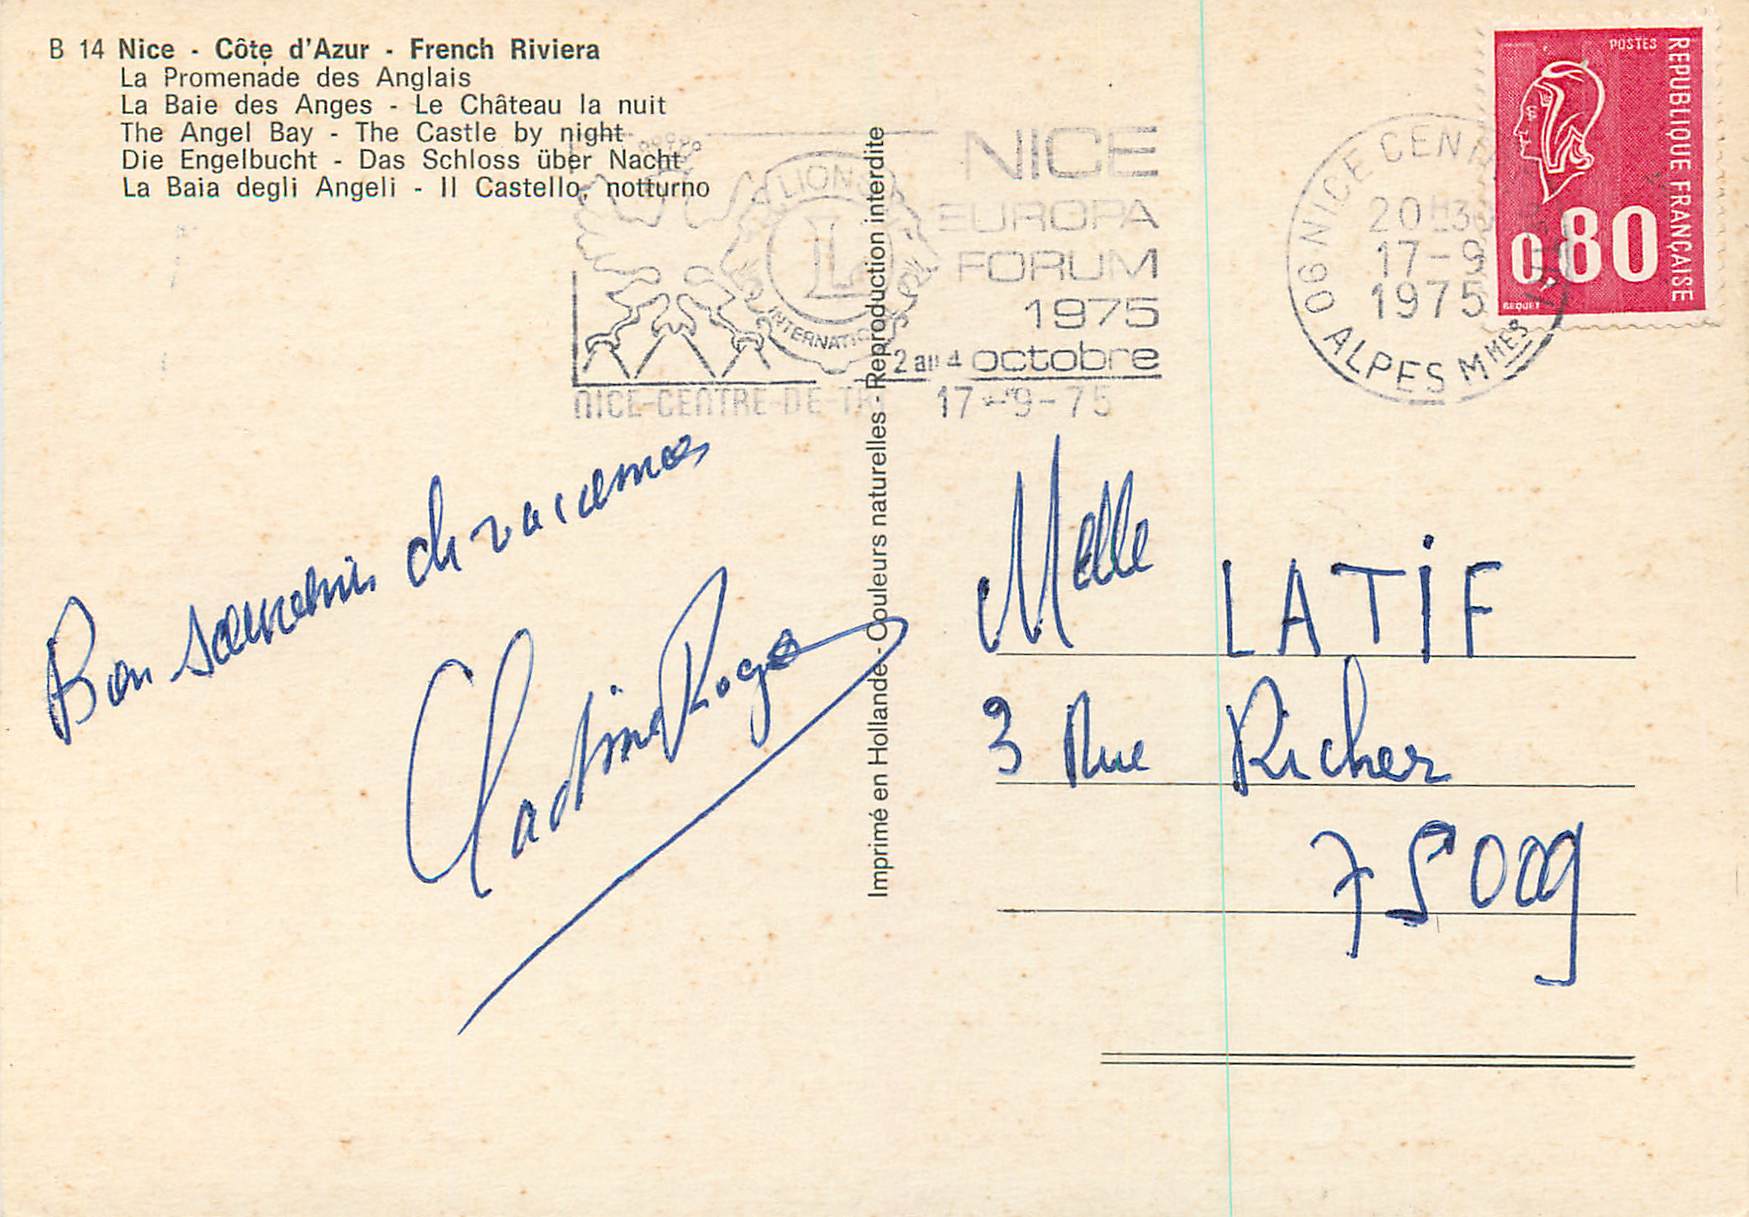 B 14 Nice - Côte d'Azur - French Riviera
La Promenade des Anglais
La Baie des Anges - Le Château la nuit
The Angel Bay - The Castle by night
Die Engelbucht - Das Schloss über Nacht
La Baia degli Angeli - Il Castello, notturno
LIONS
L
INTERNATIONAL
NICE
EUROPA
FORUM
1975
2 au 4 octobre
NICE-CENTRE-DE-TRI 17-9-75
06 NICE CENTRE
20H30
17-9
1975
ALPES MMES
POSTES
REPUBLIQUE FRANÇAISE
0,80
BEQUET
Bon souvenir de vacances
Roger
Imprimé en Hollande - Couleurs naturelles - Reproduction interdite
Melle LATIF
3 Rue Richer
75009